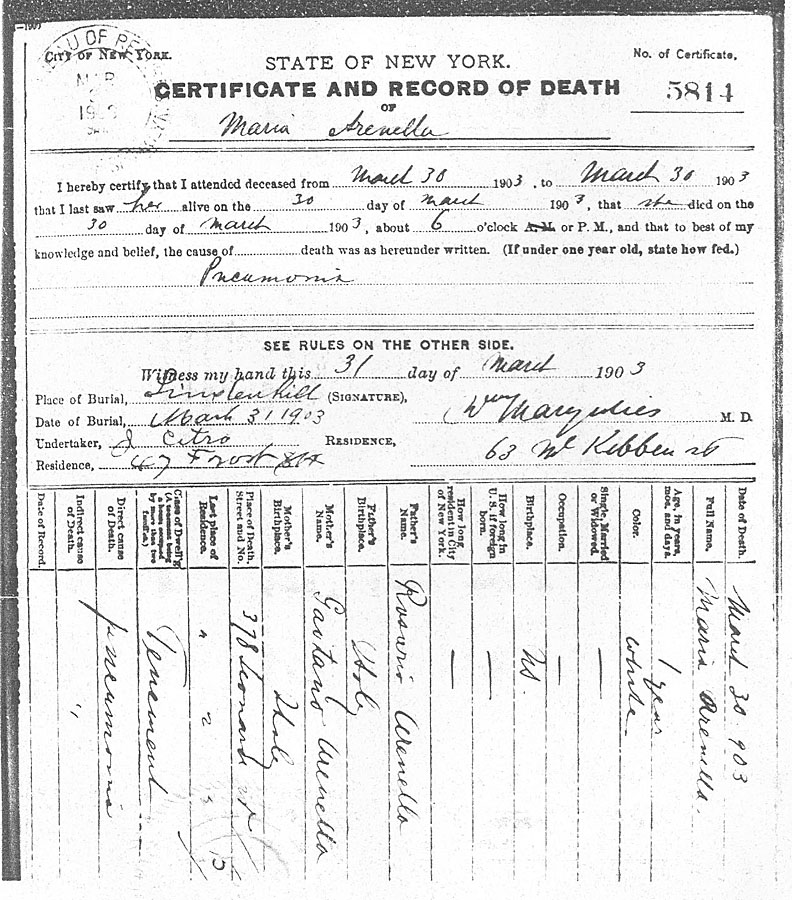 —1903
BUREAU OF RE
MAR
CITY OF NEW YORK.
STATE OF NEW YORK.
No. of Certificate,
CERTIFICATE AND RECORD OF DEATH
5814
OF
Maria Arenella
I hereby certify that I attended deceased from March 30 1903, to March 30 1903
that I last saw her alive on the 30 day of March 1903, that she died on the
30 day of March 1903, about 6 o'clock A.M. or P. M., and that to best of my
knowledge and belief, the cause of death was as hereunder written. (If under one year old, state how fed.)
Pneumonia
SEE RULES ON THE OTHER SIDE.
Witness my hand this 31 day of March 1903
Place of Burial, (SIGNATURE), Wm Margulies M. D.
Date of Burial, March 31 1903
Undertaker, J Citro RESIDENCE, 63 McKibben st
Residence, Frost
Date of Death. March 30 903
Full Name. Maria Arenella.
Age, in years, mos. and days. 1 year
Color. White
Single, Married or Widowed. —
Occupation. —
Birthplace.
How long in U. S. if foreign born. —
How long resident in City of New York. —
Father's Name. Rosario Arenella
Father's Birthplace. Italy
Mother's Name. Gaetano Arenella
Mother's Birthplace. Italy
Place of Death, Street and No. 378 Leonard st
Last place of Residence. " 2
Class of Dwell'g (A tenement being a house occupied by more than two families.) Tenement
Direct cause of Death. pneumonia
Indirect cause of Death. "
Date of Record.